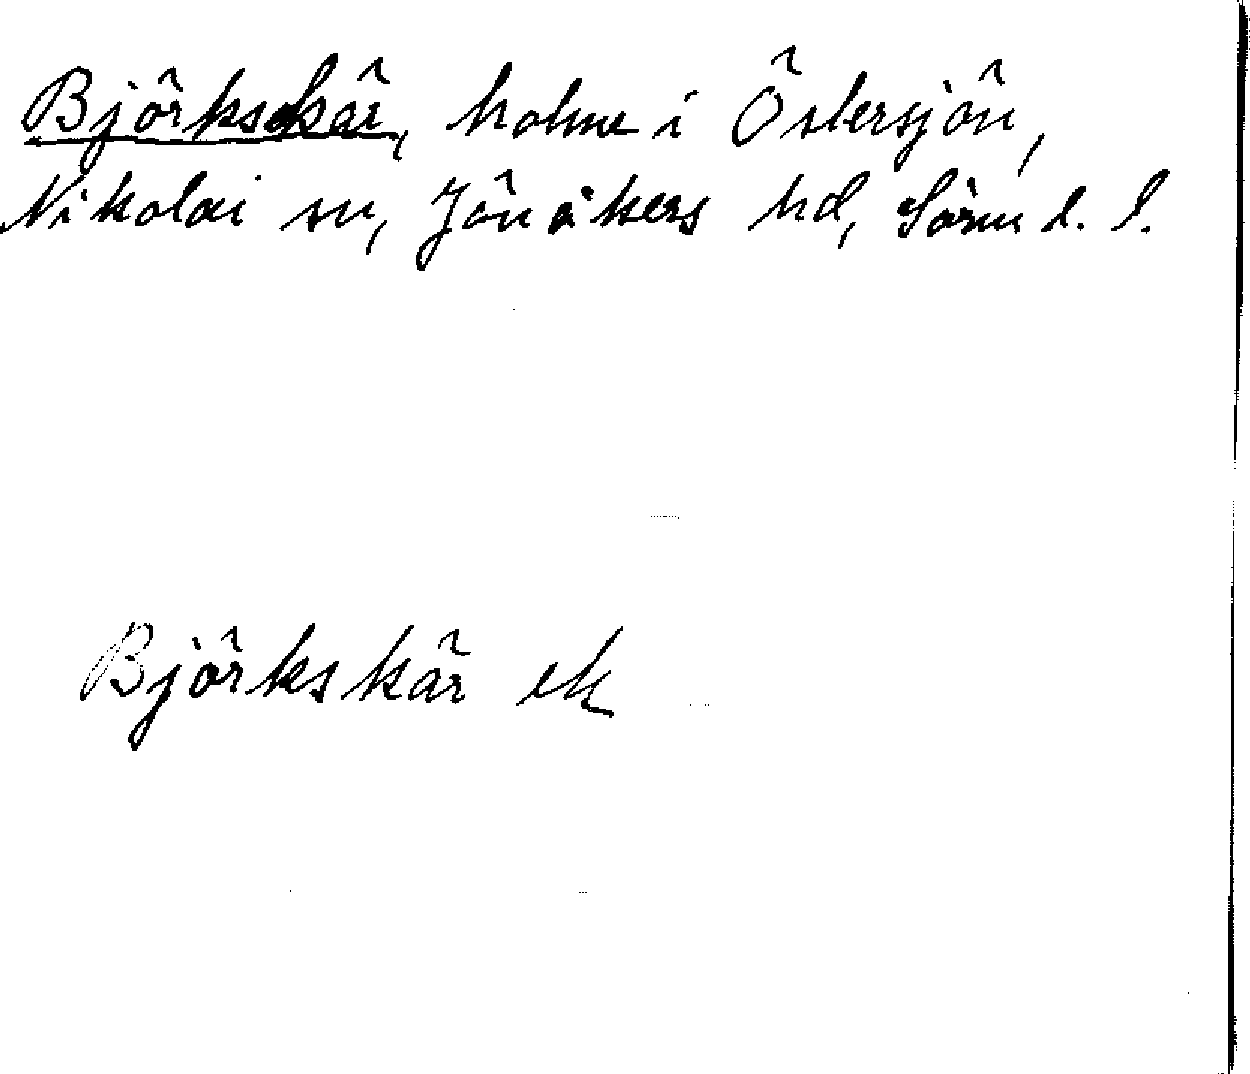 Björkskär, holme i Östersjön,
Nikolai sn, Jönåkers hd, Sörml. l.
Björkskär ek